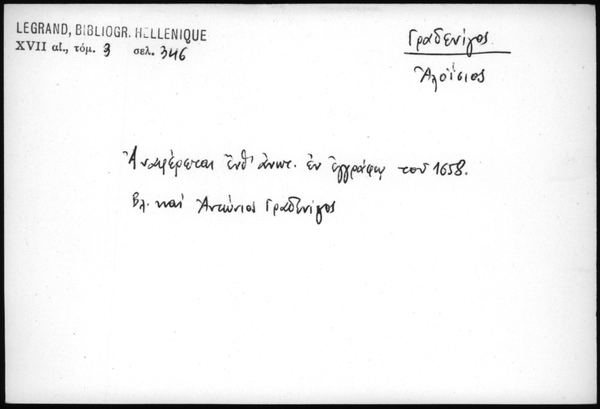 LEGRAND, BIBLIOGR. HELLENIQUE
XVII αἰ., τόμ. 3 σελ. 346
Γραδενίγος
Ἀλοίσιος
Ἀναφέρεται ἔνθ' ἀνωτ. ἐν ἐγγράφῳ τοῦ 1658.
Βλ. καὶ Ἀντώνιος Γραδενίγος